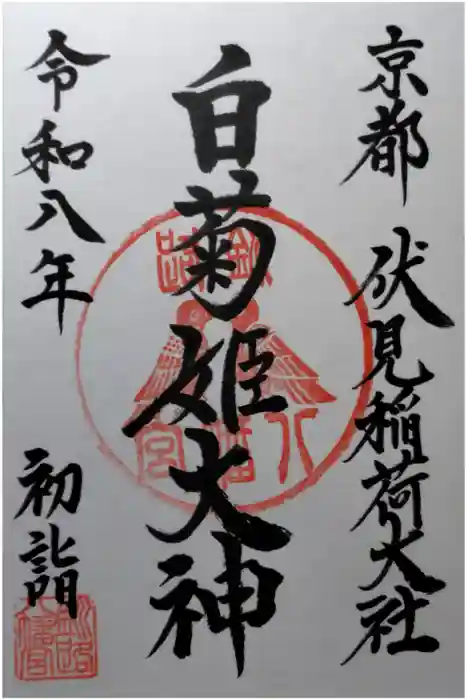 京都 伏見稲荷大社
白菊姫大神
令和八年 初詣
八幡宮